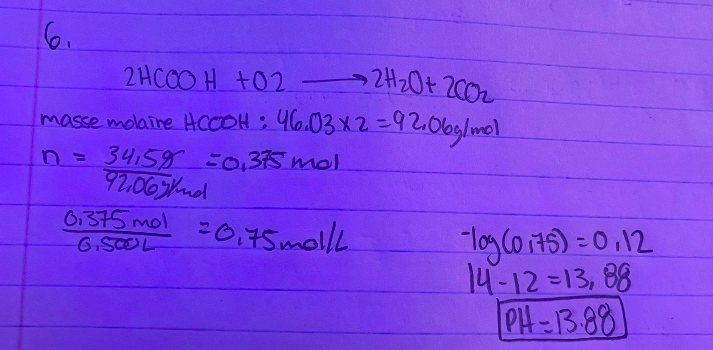 6.
2HCOOH + O2 → 2H2O + 2CO2
masse molaire HCOOH : 46.03 x 2 = 92.06g/mol
n = 34,5g / 92,06g/mol = 0,375 mol
0,375 mol / 0,500L = 0,75 mol/L
-log(0,75) = 0,12
14 - 12 = 13,88
PH = 13.88